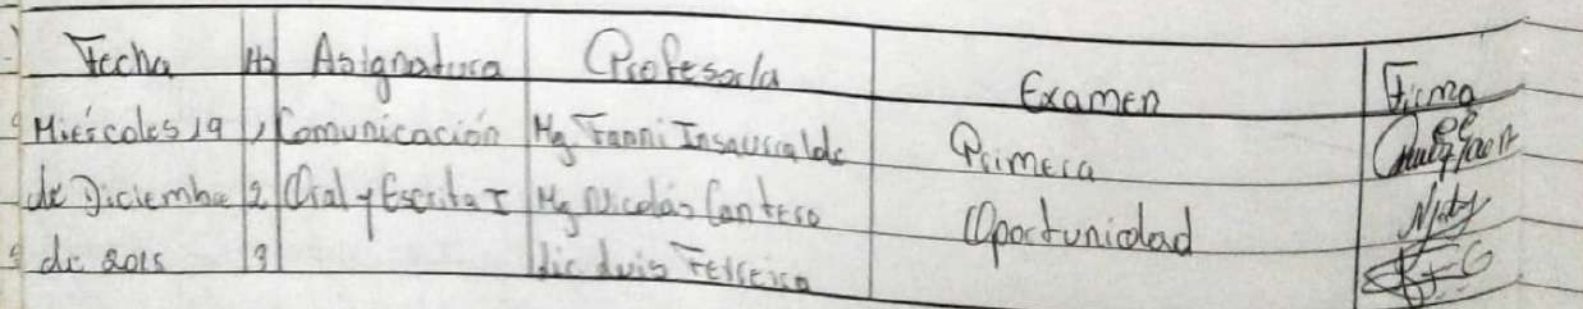 Fecha Hs Asignatura Profesor/a Examen Firma
Miércoles 19 1 Comunicación Mg Fanni Insaurralde Primera
de Diciembre 2 Oral y Escrita I Mg Nicolás Cantero Oportunidad
de 2015 3 Lic Luis Ferreira